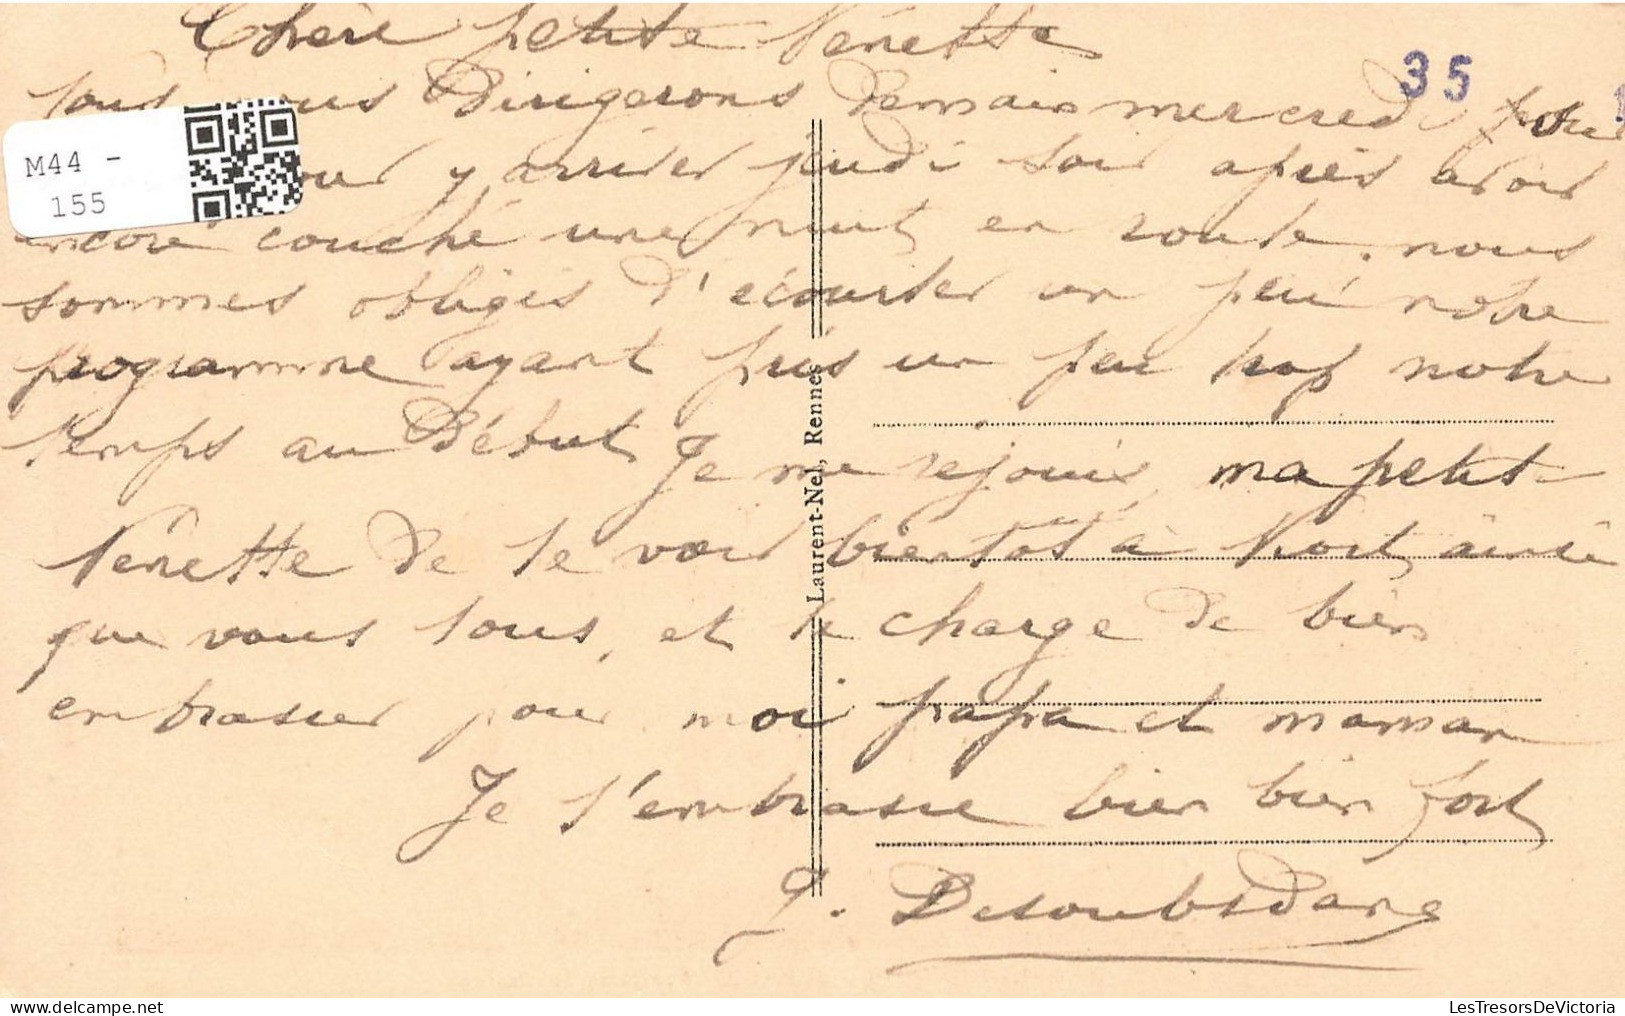 Chère petite Nénette
35
nous Dirigerons Demain mercredi pour
M44 -
155
pour y arriver jeudi soir après avoir
encore couché une nuit en route. nous
sommes obligés d'écourter un peu notre
programme ayant pris un peu trop notre
temps au Début Je me réjouis, ma petite
Nénette de te voir bientôt à Niort ainsi
que vous tous, et te charge de bien
embrasser pour moi papa et maman
Je t'embrasse bien bien fort
Laurent-Nel, Rennes
LesTresorsDeVictoria